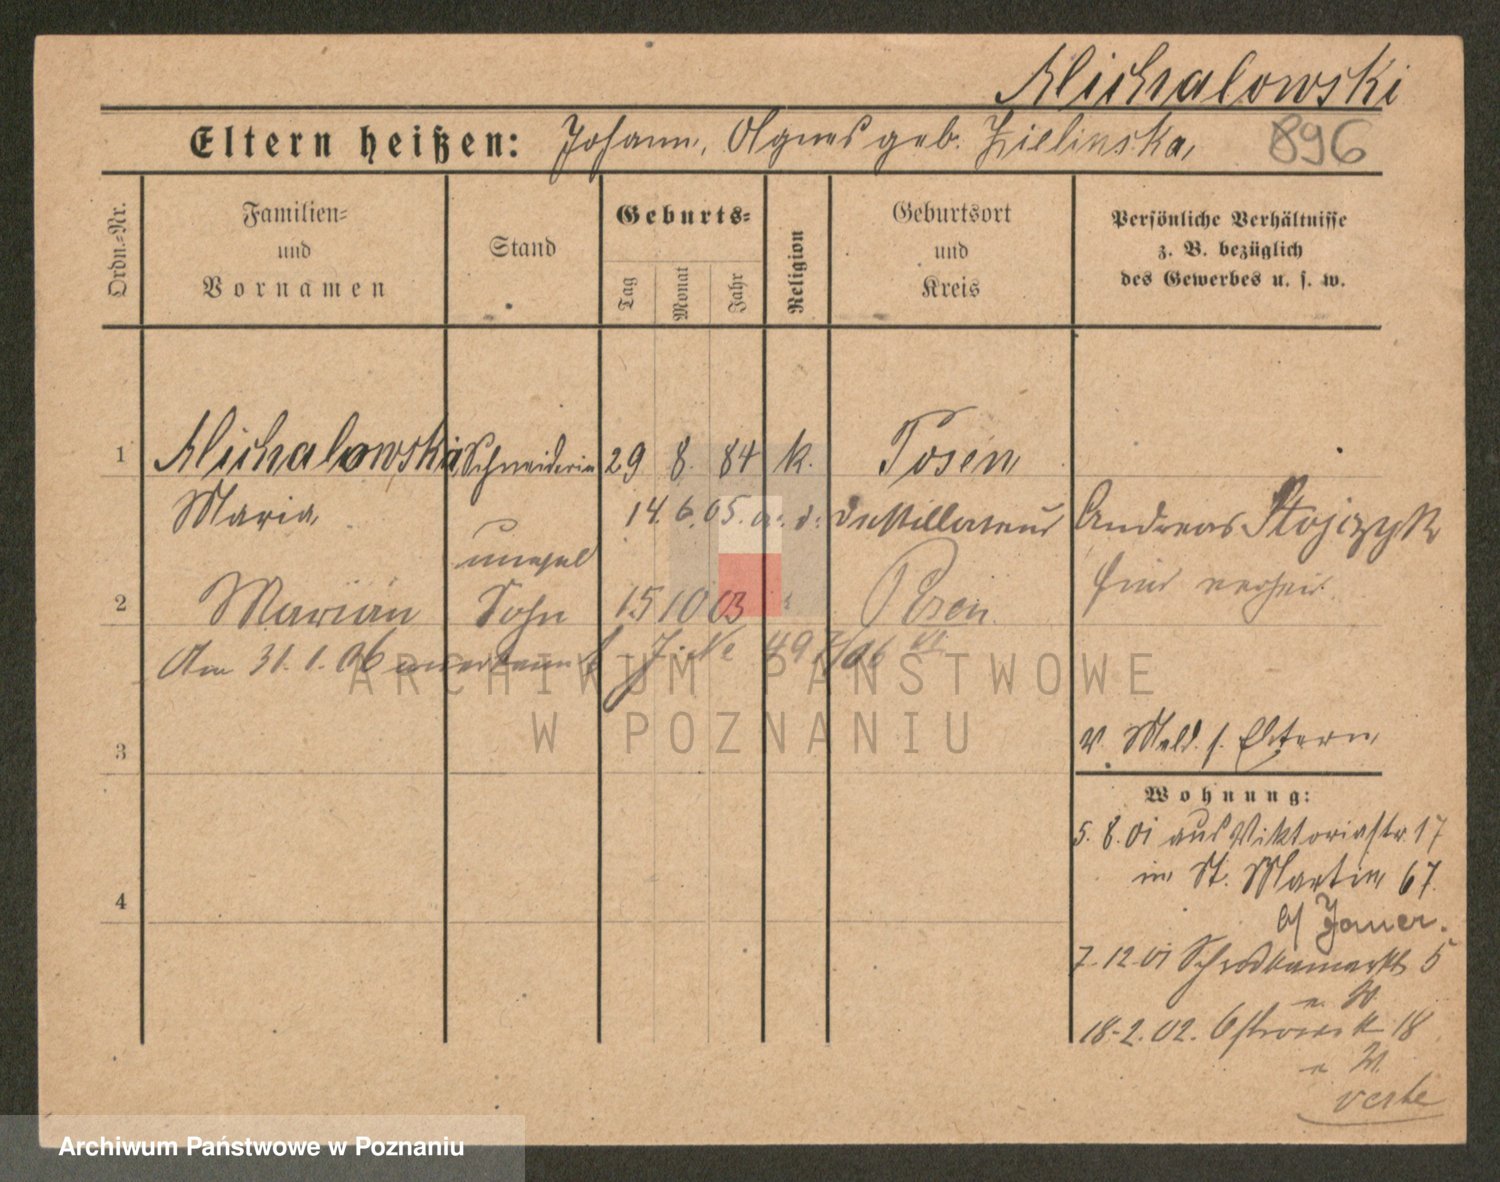 Michalowski
Eltern heißen: Johann, Agnes geb. Zielinska,
896
Ordn.-Nr.
Familien-
und
Vornamen
Stand
Geburts-
Tag
Monat
Jahr
Religion
Geburtsort
und
Kreis
Persönliche Verhältnisse
z. B. bezüglich
des Gewerbes u. s. w.
1 Michalowska Schneiderin 29 8. 84 k. Posen
Maria 14. 6. 05. Andreas Stojczyk
unehel
2 Marian Sohn 15 10 03 Posen
Am 31. 1. 06 anerkannt J. No
3
v. Meld. s. Eltern
Wohnung:
5. 8. 01 aus Viktoriastr. 17
in St. Martin 67
b/ Jauer.
4
7. 12. 01 Schrodkamarkt 5
18. 2. 02. Ostrowek 18
verte
ARCHIWUM PAŃSTWOWE
W POZNANIU
Archiwum Państwowe w Poznaniu